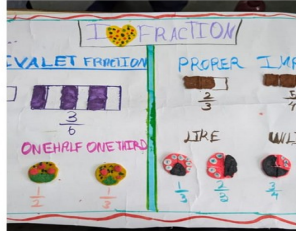 I FRACTION
IVALET FRACTION
3/6
ONEHALF ONETHIRD
1/2 1/3
PROPER IMP
2/3
LIKE
1/3 2/3 3/4